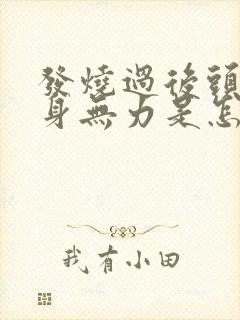 發燒過後頭
身無力是怎
我有小田